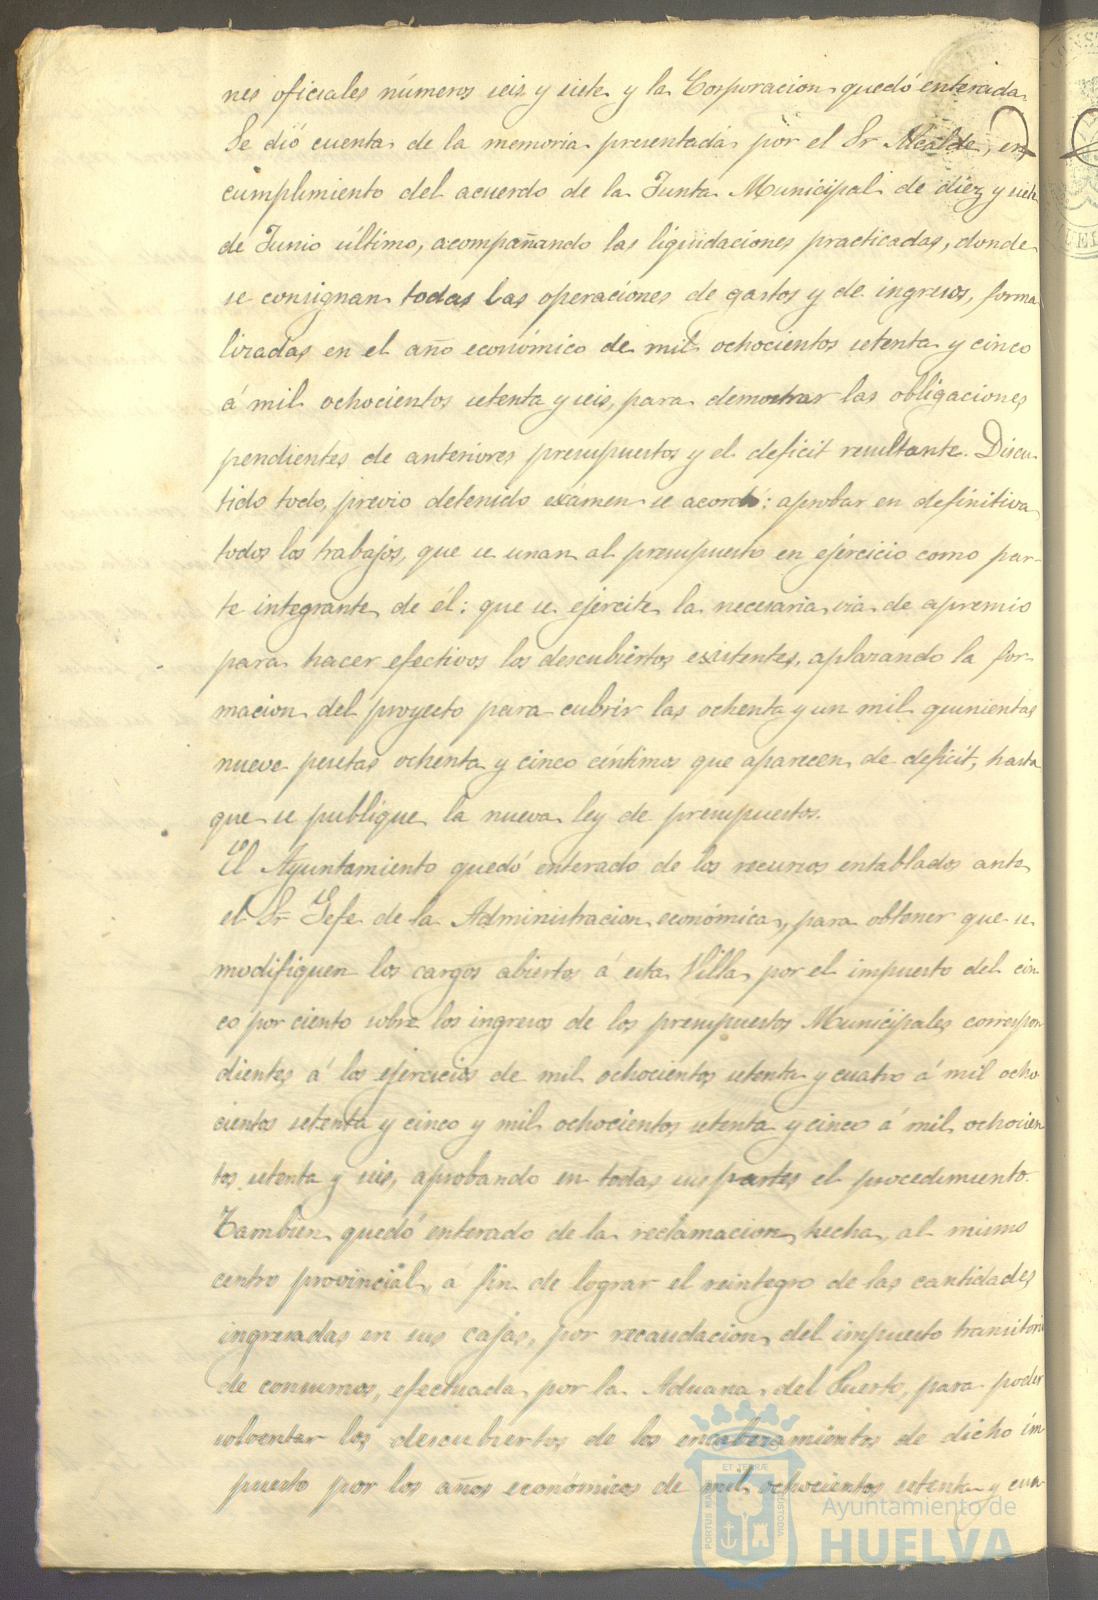 nes oficiales números seis y siete y la Corporacion quedó enterada.
Se dió cuenta de la memoria presentada por el Sr Alcalde, en
cumplimiento del acuerdo de la Junta Municipal de diez y siete
de Junio último, acompañando las liquidaciones practicadas, donde
se consignan todas las operaciones de gastos y de ingresos, forma
lizadas en el año económico de mil ochocientos setenta y cinco
á mil ochocientos setenta y seis, para demostrar las obligaciones
pendientes de anteriores presupuestos y el deficit resultante. Discu-
tido todo, previo detenido exámen se acordó: aprobar en definitiva
todos los trabajos, que se unan al presupuesto en ejercicio como par-
te integrante de él: que se ejercite la necesaria via de apremio
para hacer efectivos los descubiertos existentes, aplazando la for-
macion del proyecto para cubrir las ochenta y un mil quinientas
nueve pesetas ochenta y cinco céntimos que aparecen de deficit, hasta
que se publique la nueva ley de presupuestos.
El Ayuntamiento quedó enterado de los recursos entablados ante
el Sr Gefe de la Administracion económica, para obtener que se
modifiquen los cargos abiertos á esta Villa por el impuesto del cin
co por ciento sobre los ingresos de los presupuestos Municipales correspon
dientes á los ejercicios de mil ochocientos setenta y cuatro á mil ocho
cientos setenta y cinco y mil ochocientos setenta y cinco á mil ochocien
tos setenta y seis, aprobando en todas sus partes el procedimiento.
Tambien quedó enterado de la reclamacion hecha, al mismo
centro provincial, á fin de lograr el reintegro de las cantidades
ingresadas en sus cajas, por recaudacion del impuesto transitorio
de consumos, efectuada por la Aduana del Puerto, para poder
solventar los descubiertos de los encabezamientos de dicho im
puesto por los años económicos de mil ochocientos setenta y cua
PORTUS MARIS
ET TERRÆ
CUSTODIA
Ayuntamiento de
HUELVA